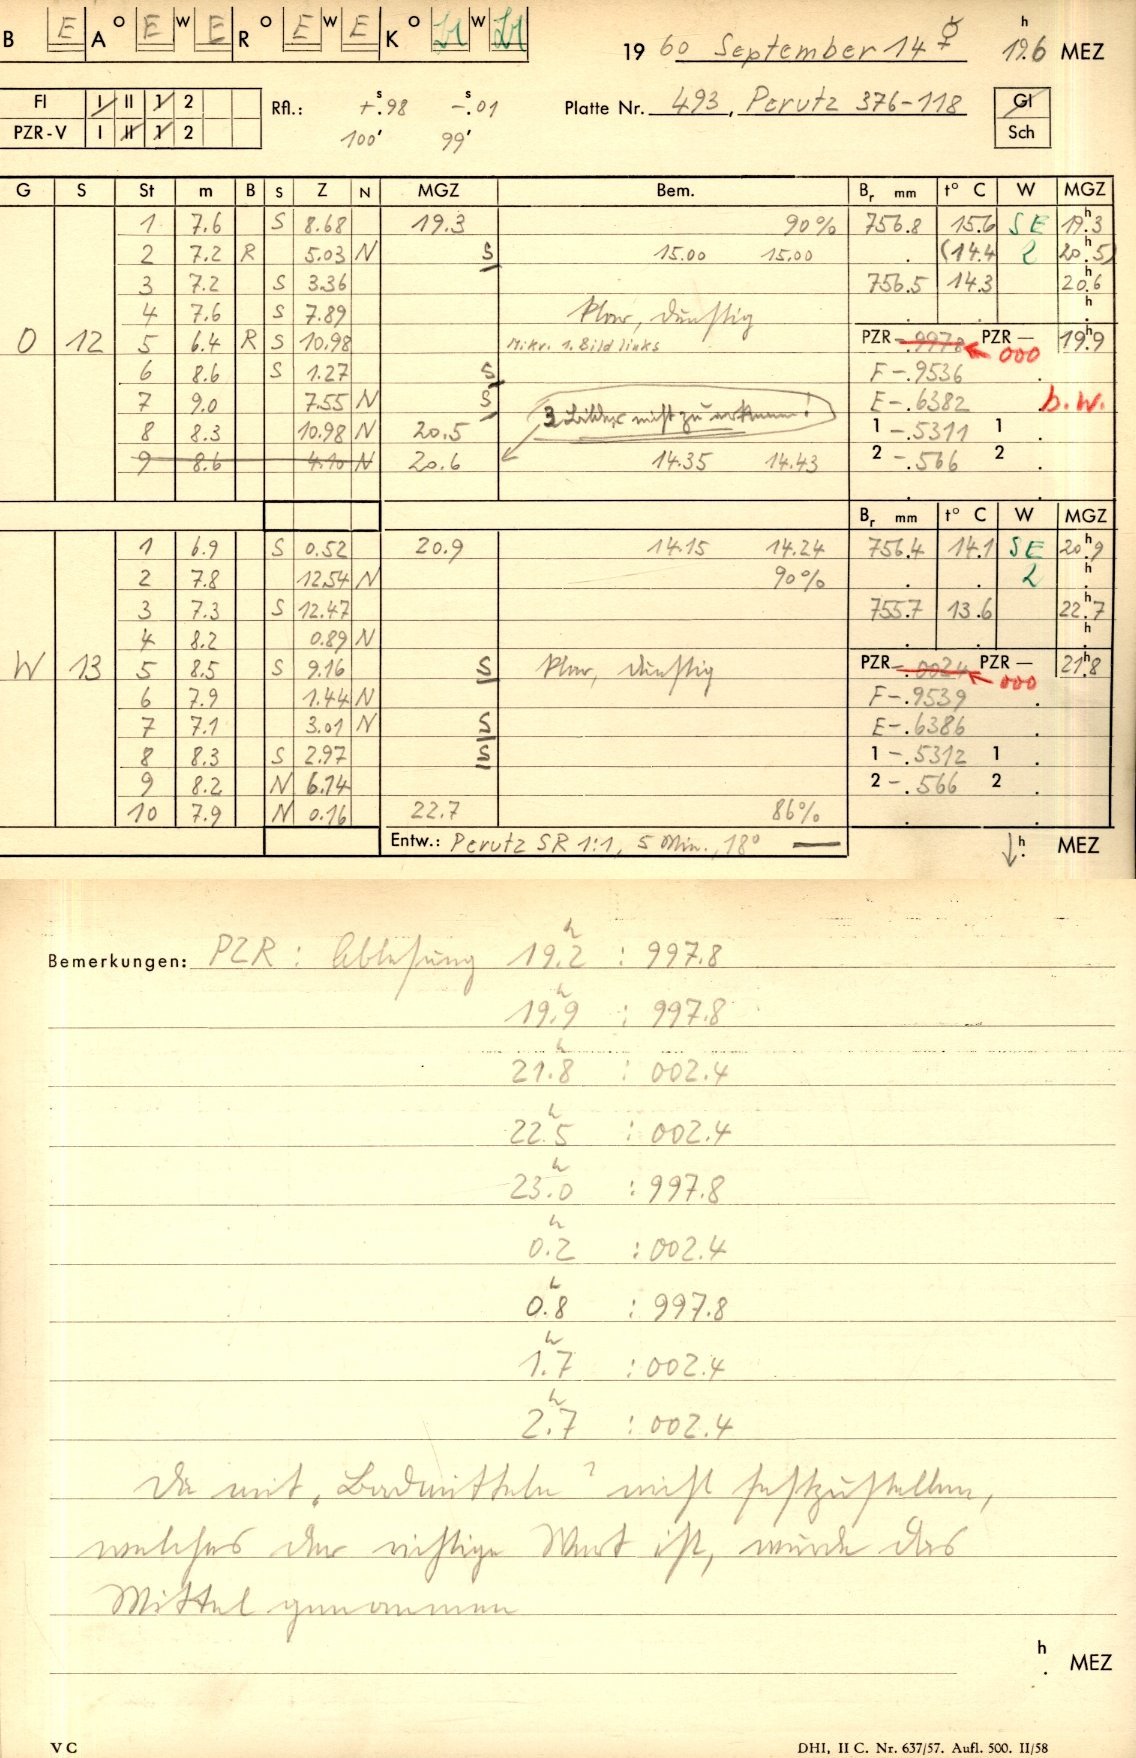 B E A° E W E R° E W E K° W
19 60 September 14 ☿ 19.6 h MEZ
Fl I II 1 2
PZR-V I II 1 2
Rfl.: +.98 s -.01 s
100' 99'
Platte Nr. 493, Perutz 376-118
Gl
Sch
G S St m B S Z N MGZ Bem. Br mm t° C W MGZ
1 7.6 S 8.68 19.3 90% 756.8 15.6 SE 19.3 h
2 7.2 R 5.03 N S 15.00 15.00 . (14.4 2 20.5) h
3 7.2 S 3.36 756.5 14.3 20.6 h
4 7.6 S 7.89 klar, dunstig h
O 12 5 6.4 R S 10.98 Mikr. 1. Bild links PZR -.9978 PZR — 19.9 h
000
6 8.6 S 1.27 S F -.9536
7 9.0 7.55 N S 3 Bilder nicht zu erkennen! E -.6382 b.W.
8 8.3 10.98 N 20.5 1 -.5311 1
9 8.6 4.10 N 20.6 14.35 14.43 2 -.566 2
Br mm t° C W MGZ
1 6.9 S 0.52 20.9 14.15 14.24 756.4 14.1 SE 20.9 h
2 7.8 12.54 N 90% . . 2 h
3 7.3 S 12.47 755.7 13.6 22.7 h
4 8.2 0.89 N h
W 13 5 8.5 S 9.16 S klar, dunstig PZR -.0024 PZR — 21.8 h
000
6 7.9 1.44 N F -.9539
7 7.1 3.01 N S E -.6386
8 8.3 S 2.97 S 1 -.5312 1
9 8.2 N 6.74 2 -.566 2
10 7.9 N 0.16 22.7 86%
Entw.: Perutz SR 1:1, 5 Min., 18° — h MEZ
Bemerkungen: PZR: Ablesung 19.2 h : 997.8
19.9 h : 997.8
21.8 h : 002.4
22.5 h : 002.4
23.0 h : 997.8
0.2 h : 002.4
0.8 h : 997.8
1.7 h : 002.4
2.7 h : 002.4
Da mit nicht festzustellen,
welches der richtige Wert ist, wurde das
Mittel genommen
h MEZ
V C DHI, II C. Nr. 637/57. Aufl. 500. II/58